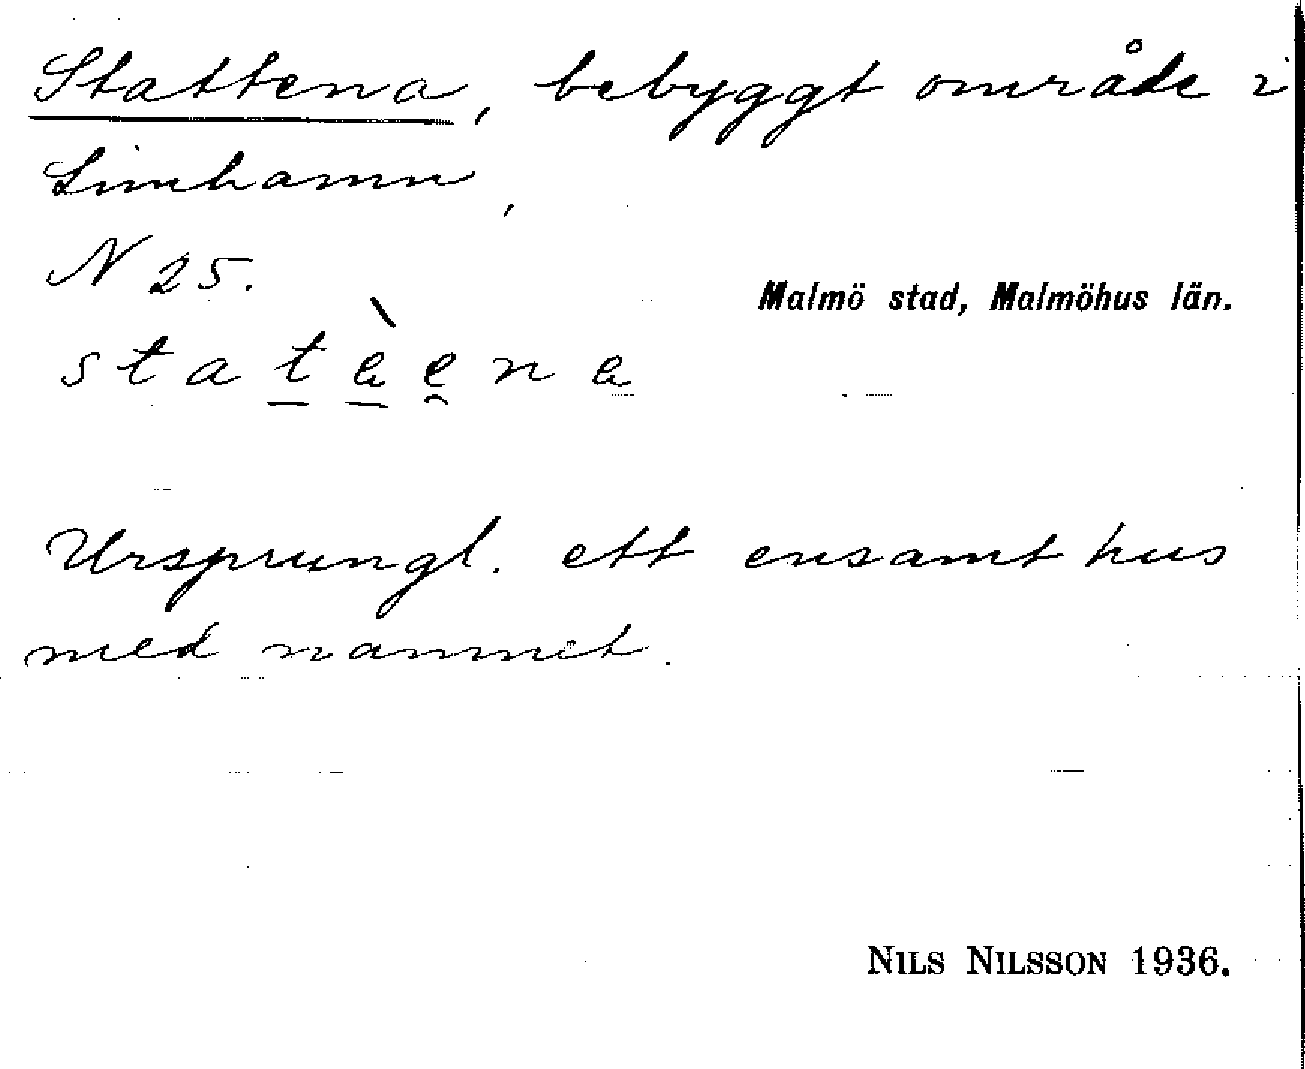 Stattena, bebyggt område i
Limhamn,
N 25.
Malmö stad, Malmöhus län.
Ursprungl. ett ensamt hus
med namnet.
NILS NILSSON 1936.